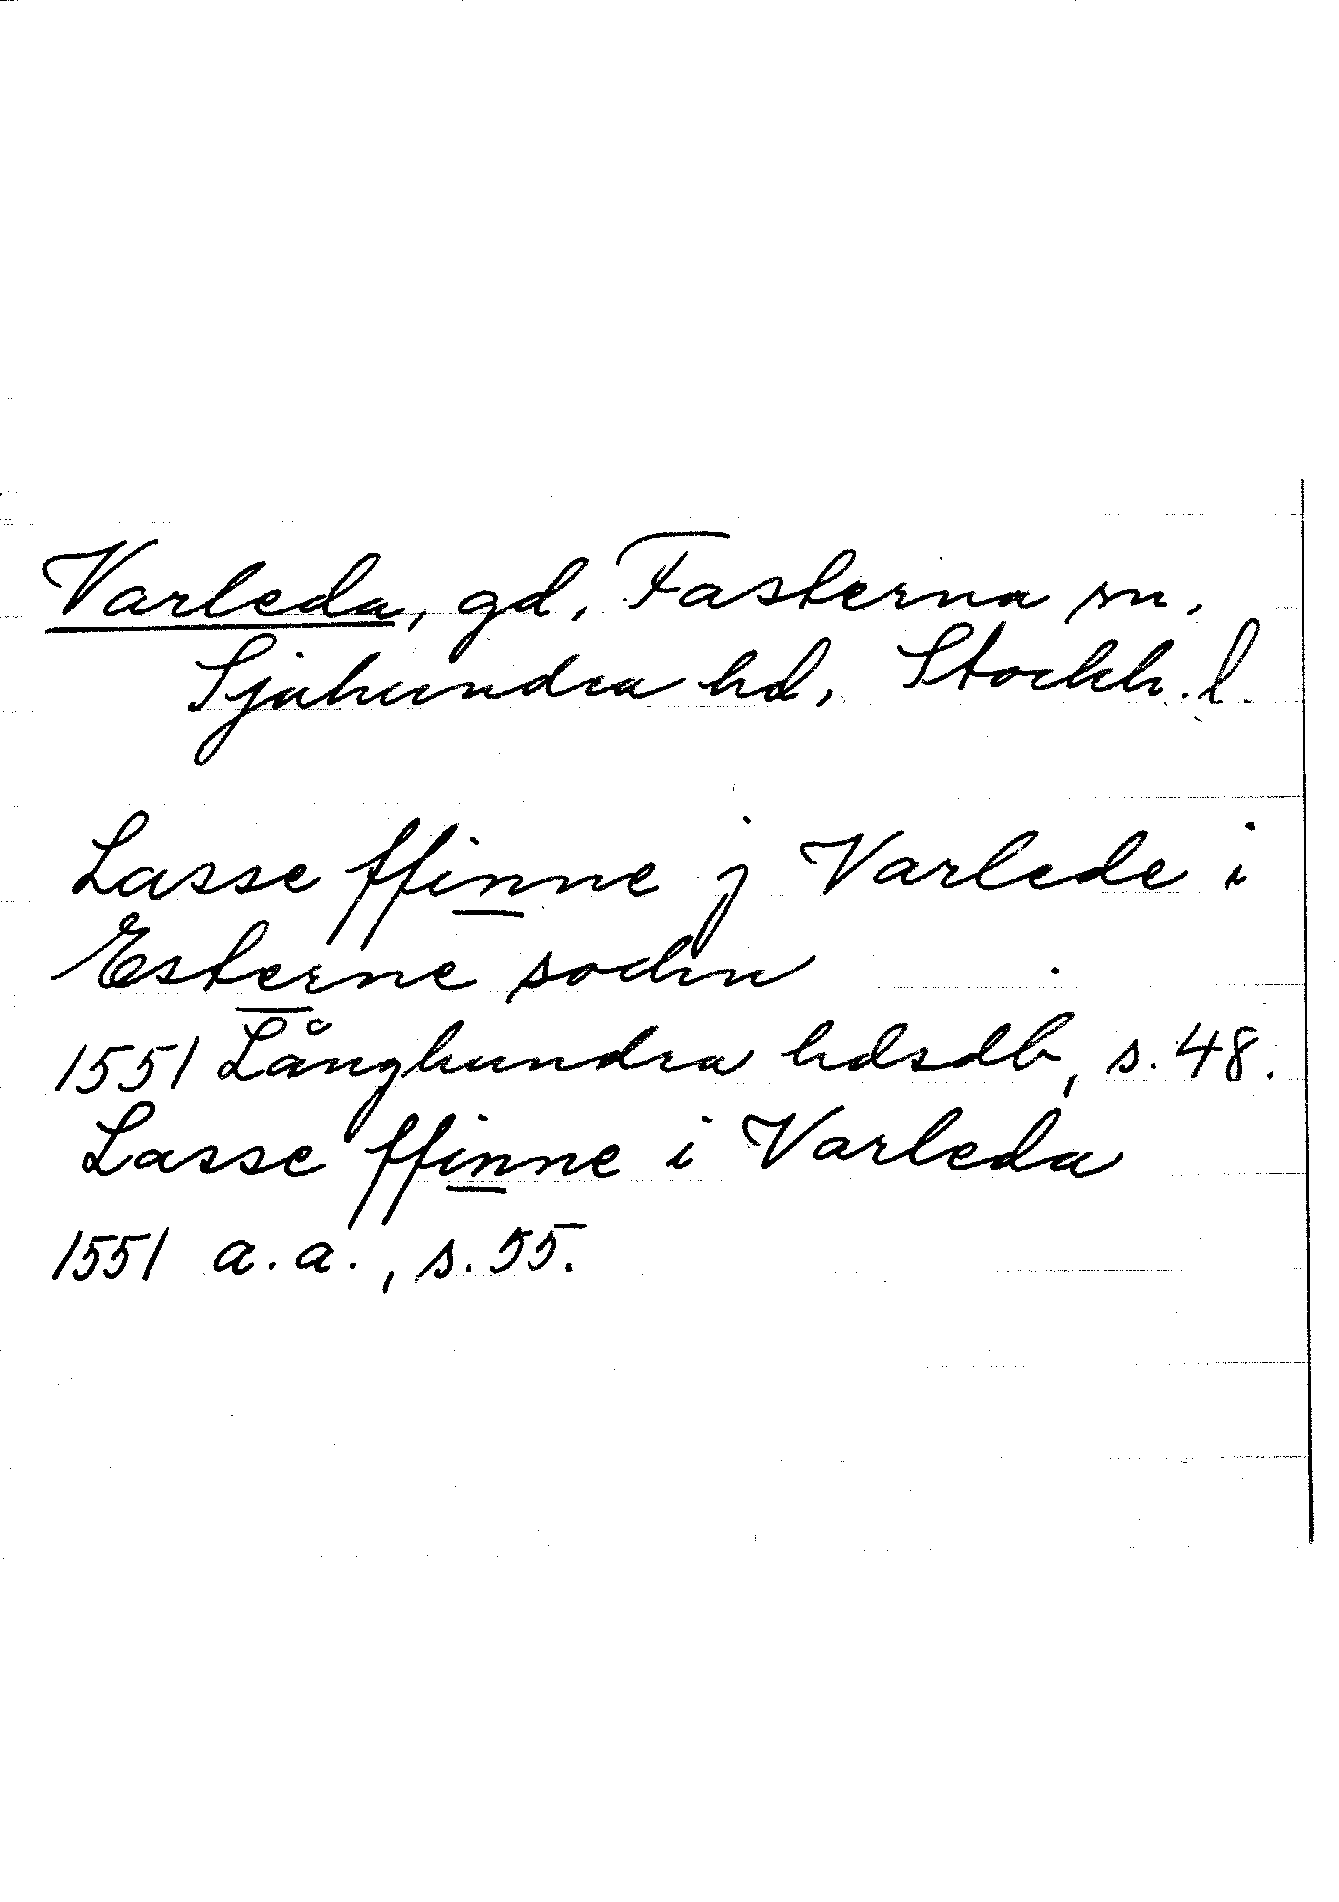 Varleda, gd, Fasterna sn.
Sjuhundra hd, Stockh. l.
Lasse ffinne j Varlede i
Esterne sochn
1551 Långhundra hdsdb, s. 48.
Lasse ffinne i Varleda
1551 a. a., s. 55.